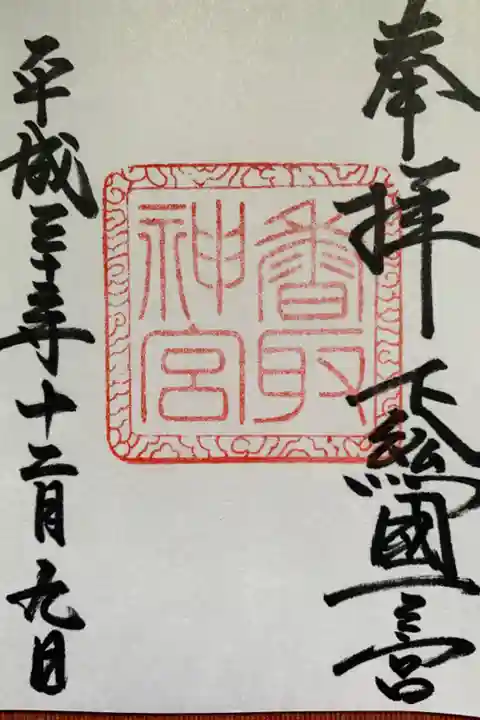 奉拝 下總國一宮
香取
神宮
平成三十年十二月九日